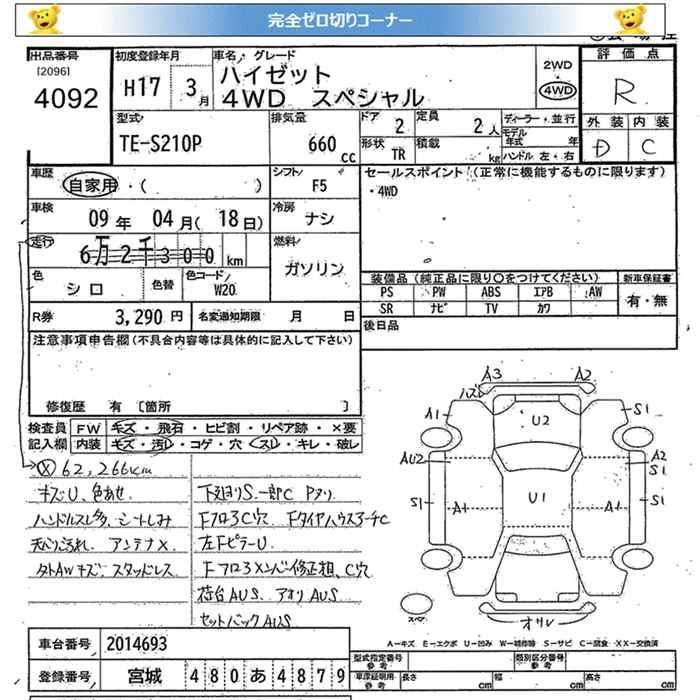 完全ゼロ切りコーナー
出品番号
[2096]
4092
初度登録年月
H17 3月
車名・グレード
ハイゼット
4WD スペシャル
2WD
4WD
評価点
R
外装 内装
D C
型式
TE-S210P
排気量
660 cc
ドア
2
定員
2人
形状
TR
積載
kg
ディーラー・並行
モデル年式 年
ハンドル 左・右
車歴
自家用・( )
シフト
F5
セールスポイント (正常に機能するものに限ります)
・4WD
車検
09年 04月(18日)
冷房
ナシ
走行
6万2千300km
燃料
ガソリン
色
シロ
色替
色コード
W20
装備品 (純正品に限り○をつけてください)
新車保証書
PS PW ABS エアB AW
SR ナビ TV カワ
有・無
R券
3,290円
名変通知期限
月 日
後日品
注意事項申告欄 (不具合内容等は具体的に記入して下さい)
修復歴 有 [箇所 ]
検査員記入欄
FW キズ・飛石・ヒビ割・リペア跡・×要
内装 キズ・汚レ・コゲ・穴・スレ・キレ・破レ
ⓧ 62,266km
キズU、色あせ
ハンドルスレ多、シートしみ
天バリ汚れ、アンテナX
タトAWキズ、スタッドレス
下廻りS、一部C Pヌリ
Fフロア3C穴 FタイヤハウスアーチC
左FピラーU
荷台AUS、アオリAUS
セットバックAUS
A3
A2
ハズレ
A1
U2
S1
AU2
A2
S1
S1
A1
U1
A1
S1
スペア
オリレ
A－キズ E－エクボ U－凹み W－補修跡 S－サビ C－腐食 ××－交換済
車台番号
2014693
登録番号
宮城 480あ4879
型式指定番号 参考
類別区分番号 参考
車庫証明用 参考
長さ cm
幅 cm
高さ cm